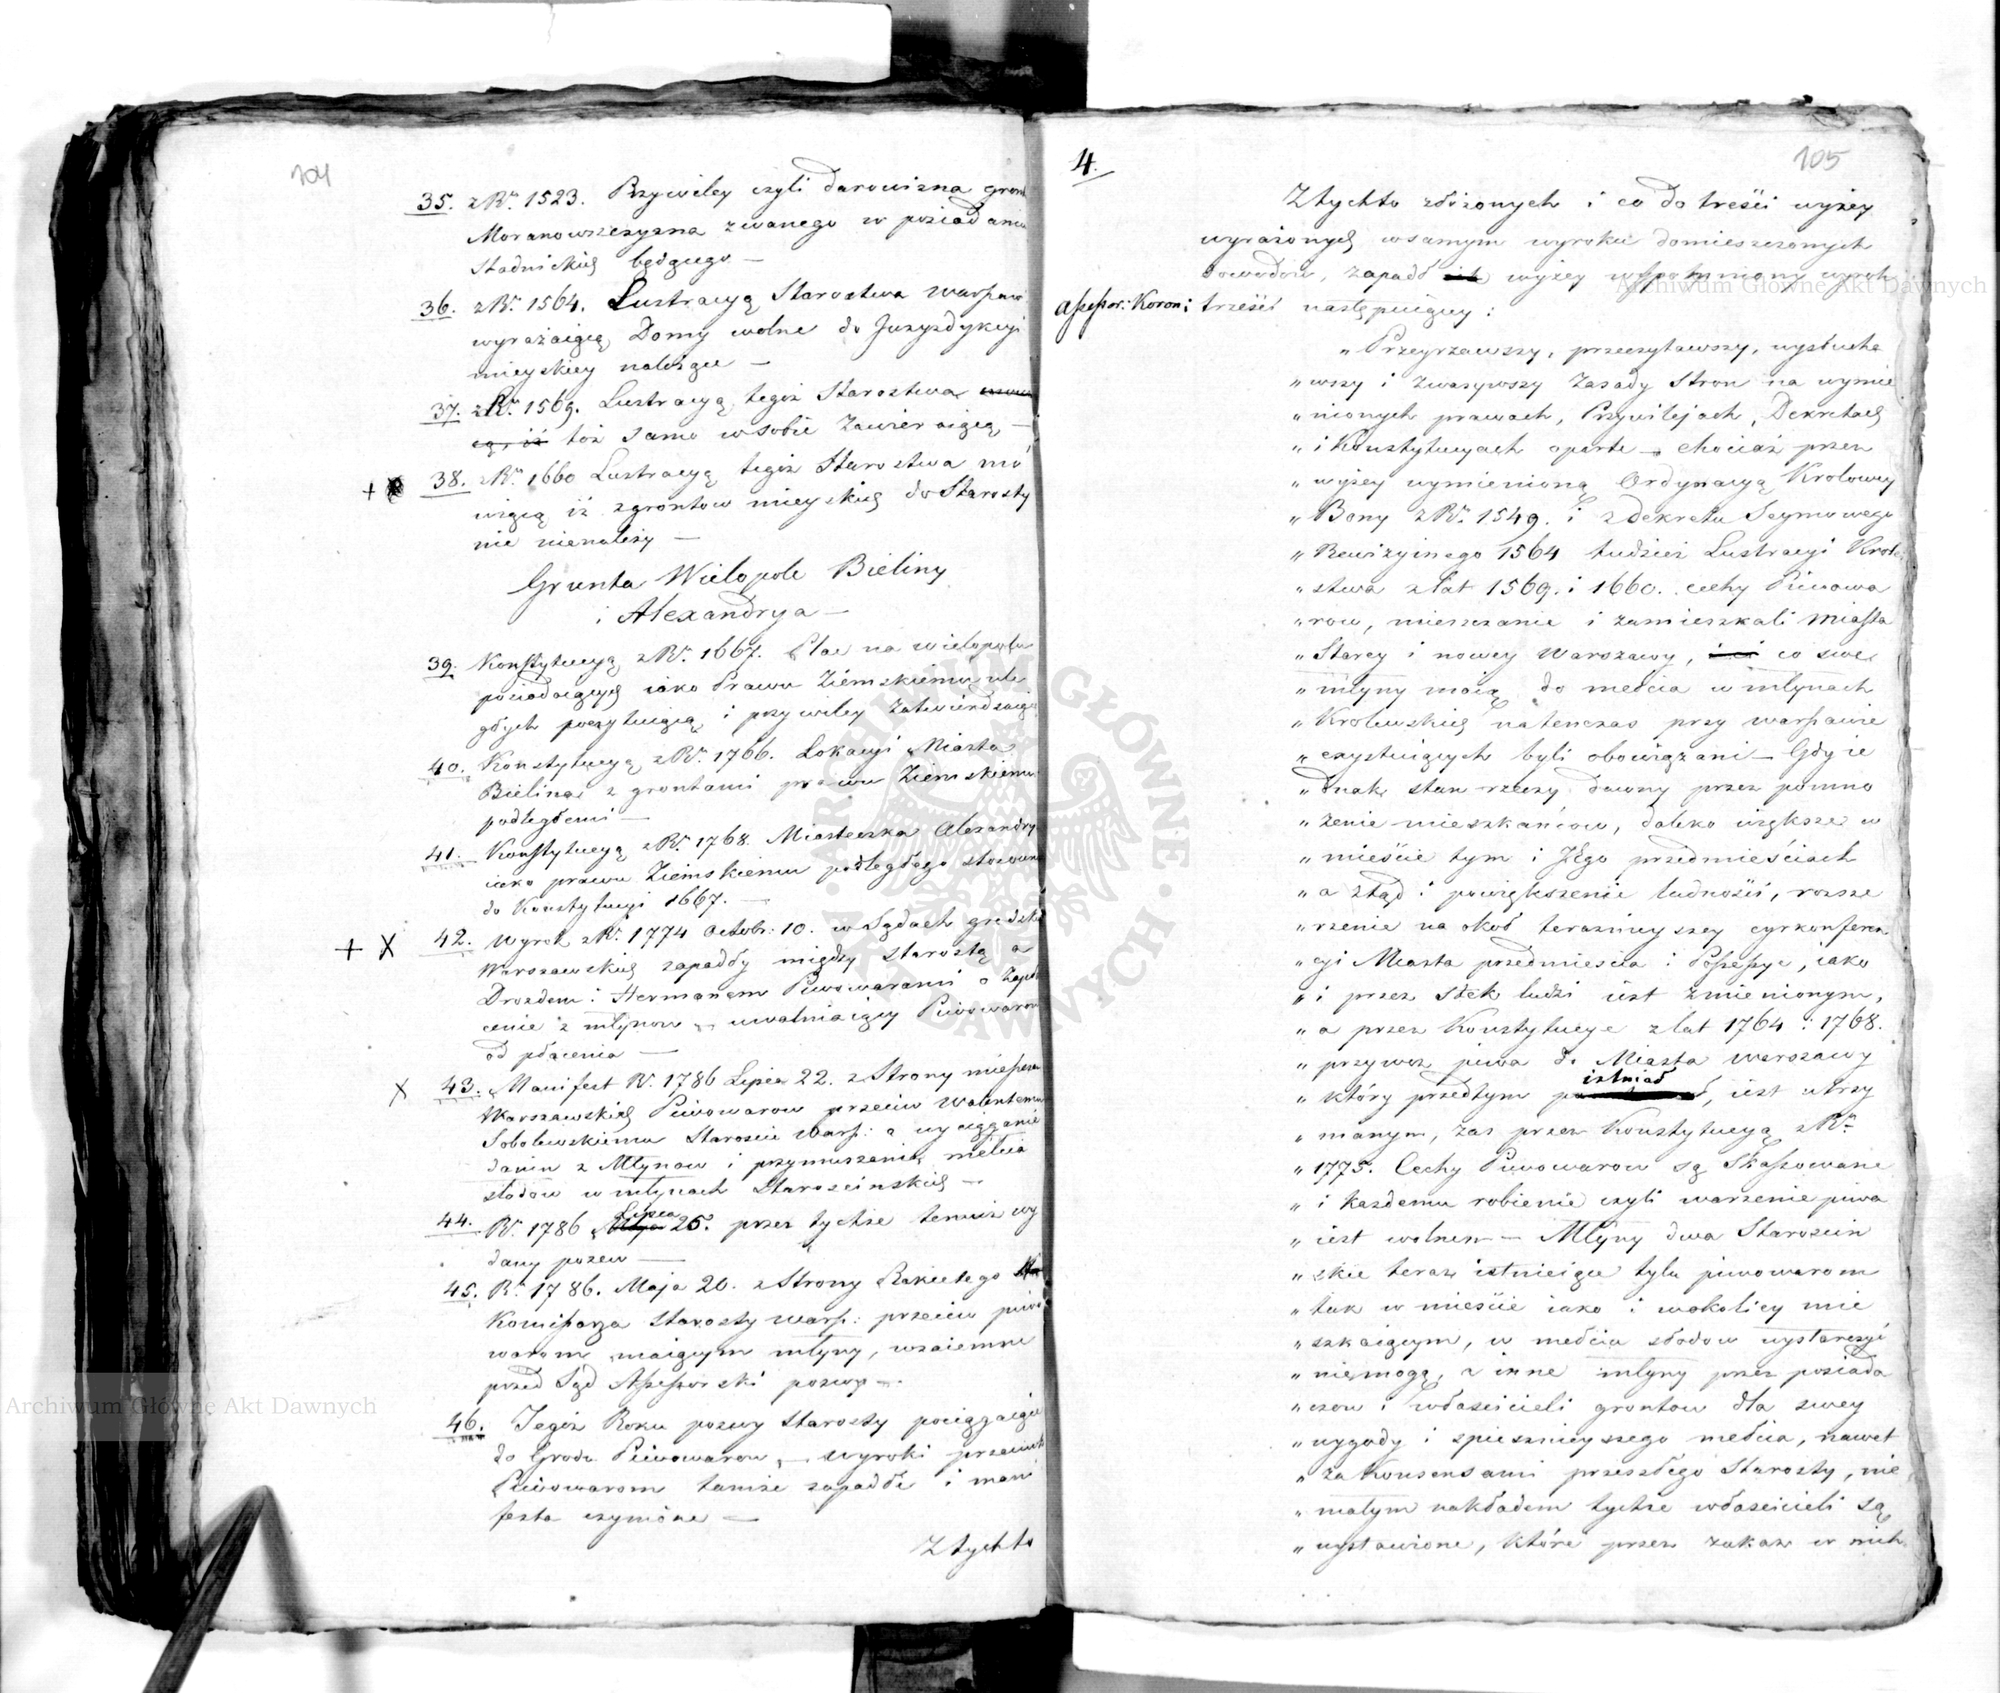 104
35. z Ru 1523. Przywiley czyli darowizna gront
Moranowszczyzna zwanego w posiadaniu
Stadnickich będącego —
36. z Ru 1564. Lustracyą Starostwa Warszaw
wyrażaiącą Domy wolne do Juryzdykcyi
mieyskiey należące —
37. z Ru 1569. Lustracyą tegoż Starostwa
toż samo w sobie zawieraiącą —
+ 38. z Ru 1660 Lustracyą tegoż Starostwa mó
wiącą iż z grontow mieyskich do Starosty
nic nienależy —
Grunta Wielopole Bieliny
i Alexandrya —
39. Konstytucyą z Ru 1667. Plac na wielopolu
posiadaiących iako Prawu Ziemskiemu ule
głych poczytuiącą i przywiley zatwierdzaiąc
40. Konstytucyą z Ru 1766. Lokacyi Miasta
Bielina z grontami prawu Ziemskiemu
podległemi —
41. Konstytucyą z Ru 1768. Miasteczka Alexandry
iako prawu Ziemskiemu podległego stosowną
do Konstytucyi 1667. —
+ X 42. Wyrok z Ru 1774 Octobr: 10. w Sądach grodzkich
Warszawskich zapadły między Starostą a
Drozdem i Hermanem Piwowarami o zapła
cenie z młynow — uwalniaiący Piwowarow
od płacenia —
X 43. Manifest Ru 1786 Lipca 22. z Strony mieszcza
Warszawskich Piwowarow przeciw Walentemu
Sobolewskiemu Staroscie Warsz: o wyciąganie
danin z Młynow i przymuszenie mełcia
słodow w młynach Staroscinskich —
44. Ru 1786 Lipca 25. przez tychże temuż wy
dany pozew —
45. Ru 1786. Maja 20. z Strony Rakietego
Komissarza Starosty Warsz: przeciw piwo
warom maiącym młyny, wzaiemne
przed Sąd Assessorski pozwy —
46. Tegoż Roku pozwy Starosty pociągaiące
do Grodu Piwowarow, — wyroki przeciwko
Piwowarom tamże zapadłe i mani
festa czynione —
Z tychto
4.
105
Z tychto złożonych i co do treści wyżey
wyrażonych w samym wyroku domieszczonych
dowodow, zapadł wyżey wspomniony wyrok
assessor: Koron: treści następuiącey:
„ Przeyrzawszy, przeczytawszy, wysłucha
„ wszy i zważywszy zasady Stron na wymie
„ nionych prawach, Przywilejach, Dekretach
„ i Konstytucyach oparte — chociaż przez
„ wyżey wymienioną Ordynacyą Krolowey
„ Bony z Ru 1549. i z Dekretu Seymowego
„ Rewizyinego 1564 tudzież Lustracyi Krole
„ stwa z lat 1569. i 1660. cechy Piwowa
„ row, mieszczanie i zamieszkali Miasta
„ Starey i nowey Warszawy, co swe
„ młyny maią do mełcia w młynach
„ Krolewskich natenczas przy warszawie
„ exystuiących byli obowiązani — Gdy ie
„ dnak stan rzeczy dawny przez pomno
„ żenie mieszkańcow, daleko większe w
„ mieście tym i Jego przedmieściach
„ a ztąd i powiększenie ludności, rozsze
„ rzenie na okoł teraznieyszey cyrkonferen
„ cyi Miasta przedmieścia i Possessye, iako
„ i przez stek ludzi iest zmienionym,
„ a przez Konstytucye z lat 1764 i 1768.
„ przywoz piwa do Miasta Warszawy
„ który przedtym istniał, iest utrzy
„ manym, zas przez Konstytucyą z Ru
„ 1775. Cechy Piwowarow są skassowane
„ i każdemu robienie czyli warzenie piwa
„ iest wolnem — Młyny dwa Staroscin
„ skie teraz istnieiące tylu piwowarom
„ tak w mieście iako i w okolicy mie
„ szkaiącym, w mełciu słodow wystarczyć
„ niemogą, a inne młyny przez posiada
„ czow i właścicieli grontow dla swey
„ wygody i spiesznieyszego mełcia, nawet
„ za Konsensami przeszłego Starosty, nie
„ małym nakładem tychże właścicieli są
„ wystawione, które przez zakaz w nich
ARCHIWUM GŁÓWNE AKT DAWNYCH
Archiwum Główne Akt Dawnych
Archiwum Główne Akt Dawnych